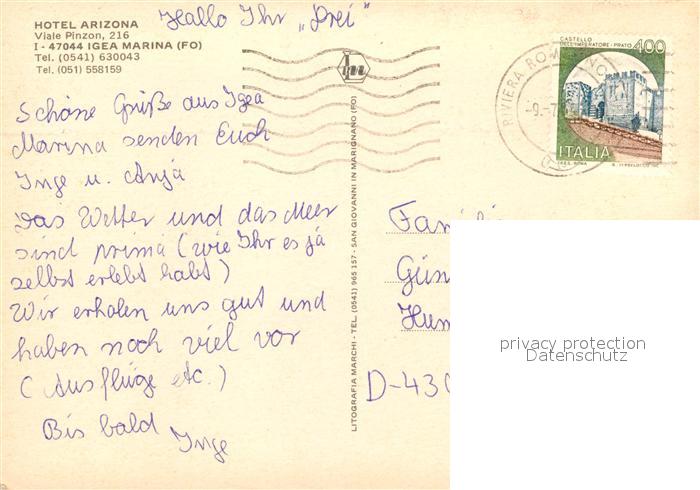 HOTEL ARIZONA
Viale Pinzon, 216
I - 47044 IGEA MARINA (FO)
Tel. (0541) 630043
Tel. (051) 558159
Hallo Ihr „Drei"
Schöne Grüße aus Igea
Marina senden Euch
Inge u. Anja
Das Wetter und das Meer
sind prima (wie Ihr es ja
selbst erlebt habt)
Wir erholen uns gut und
haben noch viel vor
(Ausflüge etc.)
Bis bald
Inge
LITOGRAFIA MARCHI - TEL. (0541) 965 157 - SAN GIOVANNI IN MARIGNANO (FO)
RIVIERA
-9.-7
CASTELLO
DELL'IMPERATORE - PRATO
400
ITALIA
Familie
Gün
D-430
privacy protection
Datenschutz